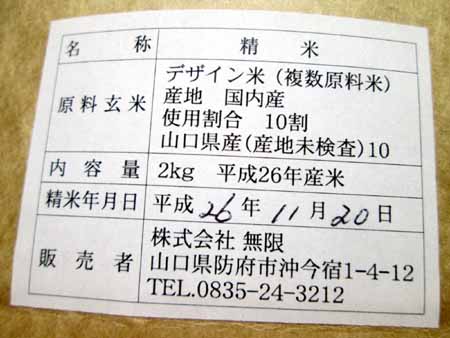 名称 精米
原料玄米 デザイン米（複数原料米）
産地 国内産
使用割合 10割
山口県産（産地未検査）10
内容量 2kg 平成26年産米
精米年月日 平成26年11月20日
販売者 株式会社 無限
山口県防府市沖今宿1-4-12
TEL.0835-24-3212